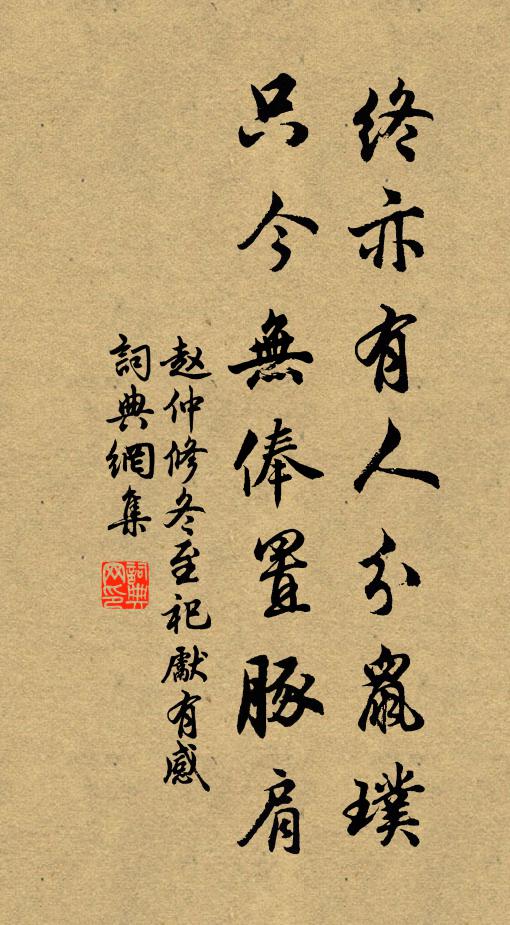 終亦有人分鼠璞
只今無俸置豚肩
赵仲修冬至祀獻有感
詞典網集
詞典網印